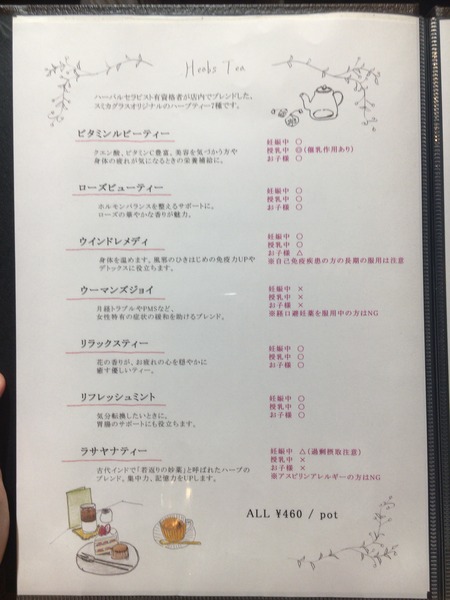 Herbs Tea
ハーバルセラピスト有資格者が店内でブレンドした、
スミカグラスオリジナルのハーブティー7種です。
ビタミンルビーティー
クエン酸、ビタミンC豊富、美容を気づかう方や
身体の疲れが気になるときの栄養補給に。
妊娠中 ○
授乳中 ◎(催乳作用あり)
お子様 ○
ローズビューティー
ホルモンバランスを整えるサポートに。
ローズの華やかな香りが魅力。
妊娠中 ○
授乳中 ○
お子様 ○
ウインドレメディ
身体を温めます。風邪のひきはじめの免疫力UPや
デトックスに役立ちます。
妊娠中 ○
授乳中 ○
お子様 △
※自己免疫疾患の方の長期の服用は注意
ウーマンズジョイ
月経トラブルやPMSなど、
女性特有の症状の緩和を助けるブレンド。
妊娠中 ×
授乳中 ×
お子様 ×
※経口避妊薬を服用中の方はNG
リラックスティー
花の香りが、お疲れの心を穏やかに
癒す優しいティー。
妊娠中 ○
授乳中 ○
お子様 ○
リフレッシュミント
気分転換したいときに。
胃腸のサポートにも役立ちます。
妊娠中 ○
授乳中 ○
お子様 ○
ラサヤナティー
古代インドで「若返りの妙薬」と呼ばれたハーブの
ブレンド。集中力、記憶力をUPします。
妊娠中 △(過剰摂取注意)
授乳中 ×
お子様 ×
※アスピリンアレルギーの方はNG
ALL ¥460 / pot